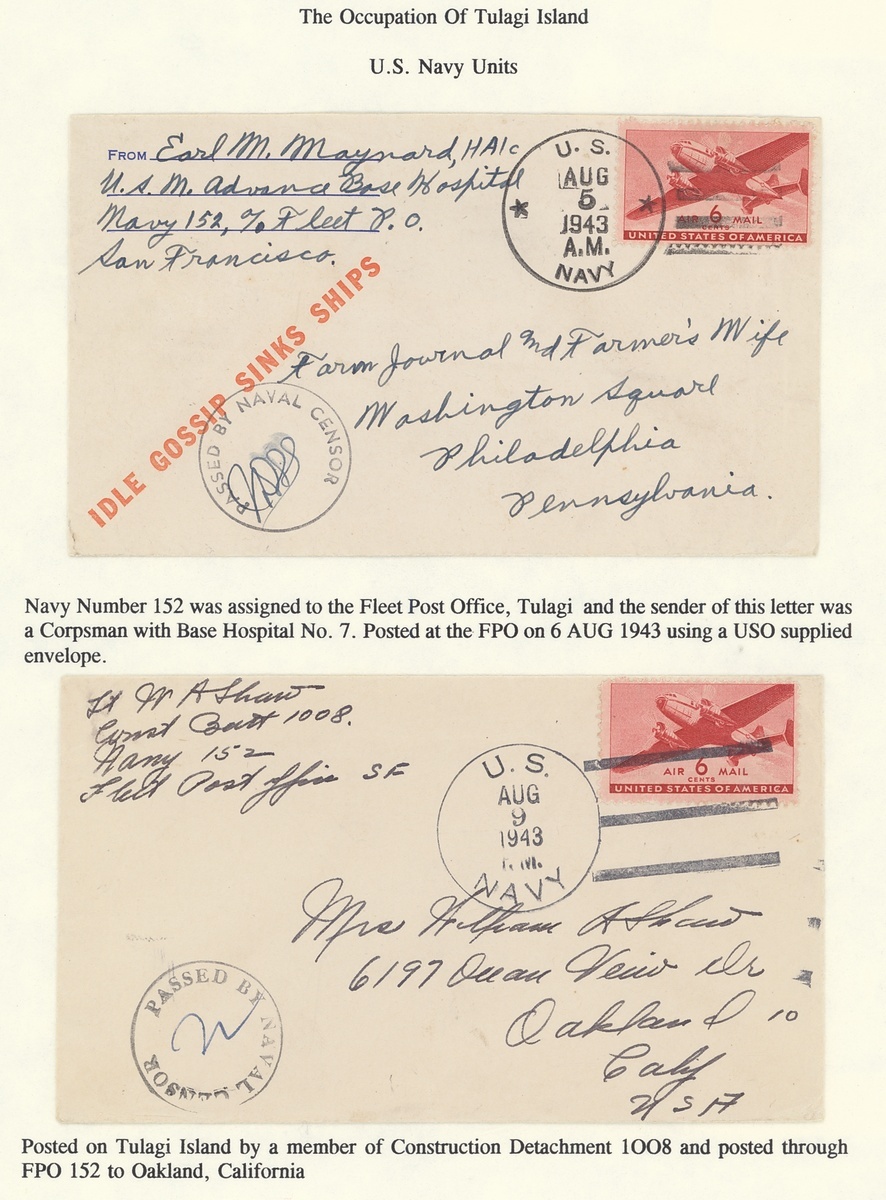 The Occupation Of Tulagi Island
U.S. Navy Units
FROM Earl M. Maynard, HA1c
U.S.M. Advance Base Hospital
Navy 152, % Fleet P.O.
San Francisco.
U. S.
AUG
5
1943
A.M.
NAVY
AIR 6 MAIL
CENTS
UNITED STATES OF AMERICA
IDLE GOSSIP SINKS SHIPS
PASSED BY NAVAL CENSOR
Farm Journal and Farmer's Wife
Washington Square
Philadelphia
Pennsylvania.
Navy Number 152 was assigned to the Fleet Post Office, Tulagi and the sender of this letter was
a Corpsman with Base Hospital No. 7. Posted at the FPO on 6 AUG 1943 using a USO supplied
envelope.
Lt W A Shaw
Const Batt 1008.
Navy 152
Fleet Post Office SF
U. S.
AUG
9
1943
NAVY
AIR 6 MAIL
CENTS
UNITED STATES OF AMERICA
Mrs William A Shaw
6197 Ocean View Dr
Oakland 10
Calif
USA
PASSED BY NAVAL CENSOR
Posted on Tulagi Island by a member of Construction Detachment 1OO8 and posted through
FPO 152 to Oakland, California